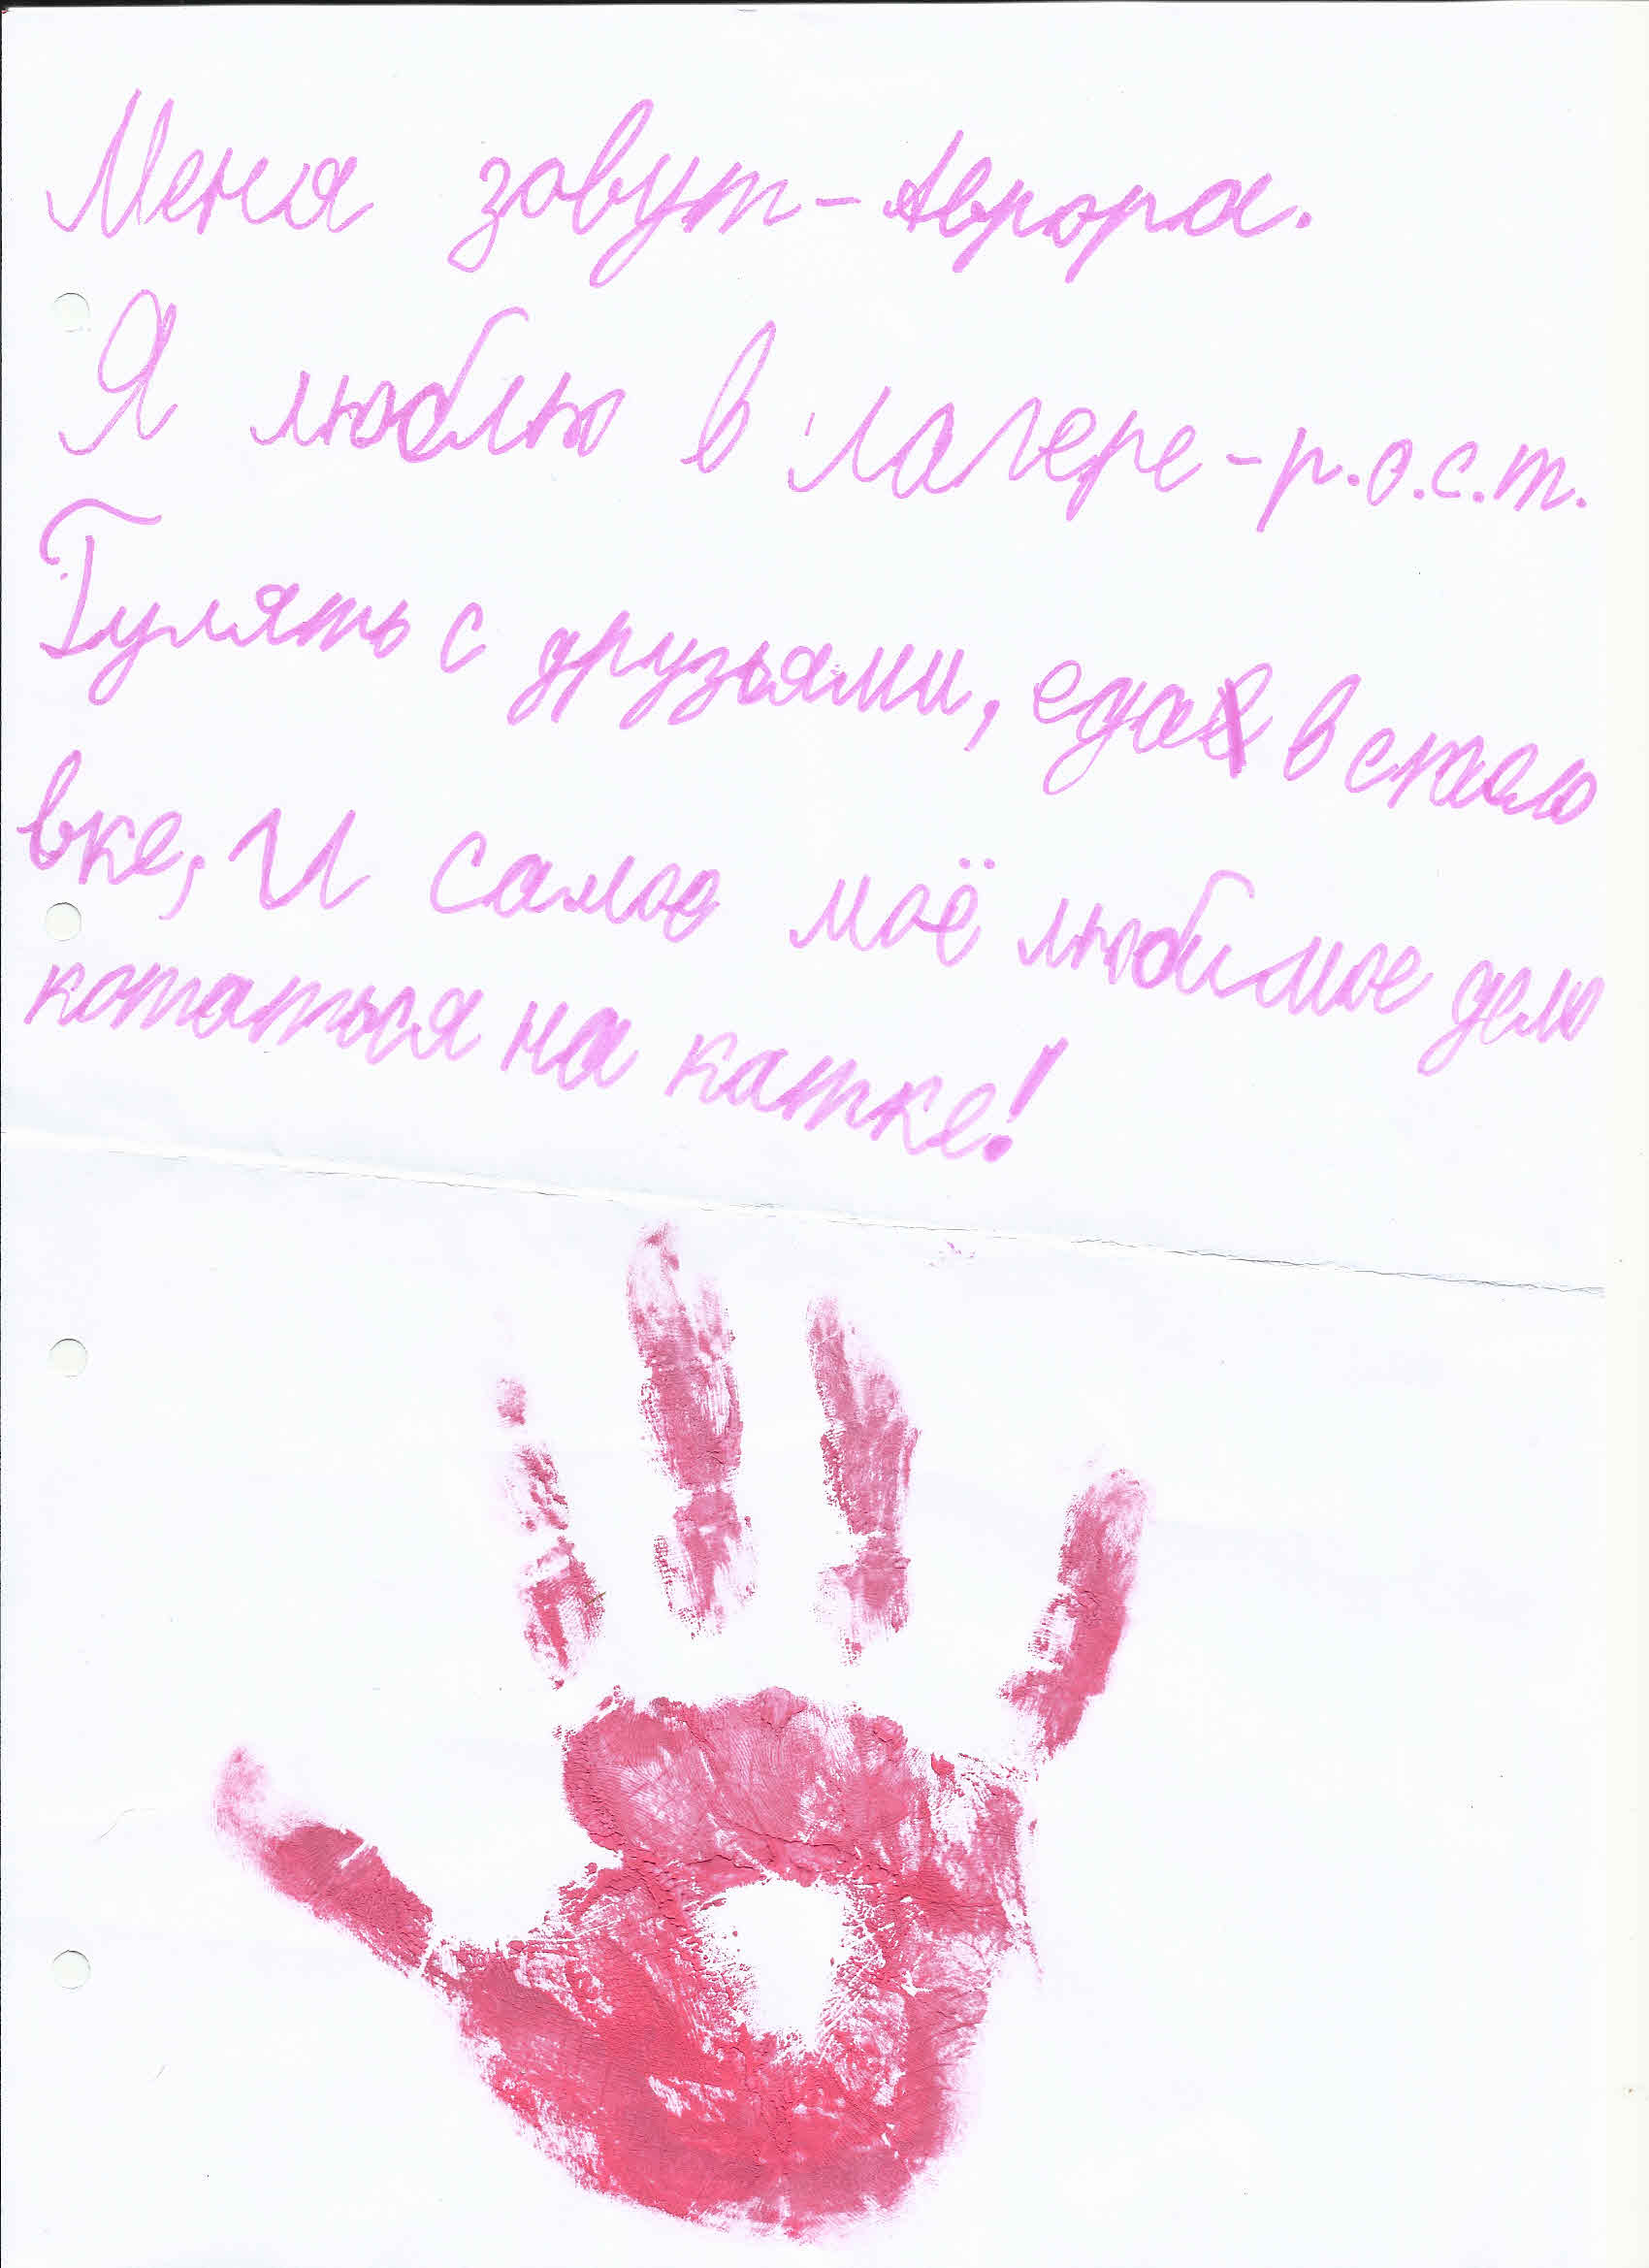 Меня зовут - Аврора.
Я люблю в лагере - р.о.с.т.
Гулять с друзьями, еда в стало
вке, И самое моё любимое дело
кататься на катке!